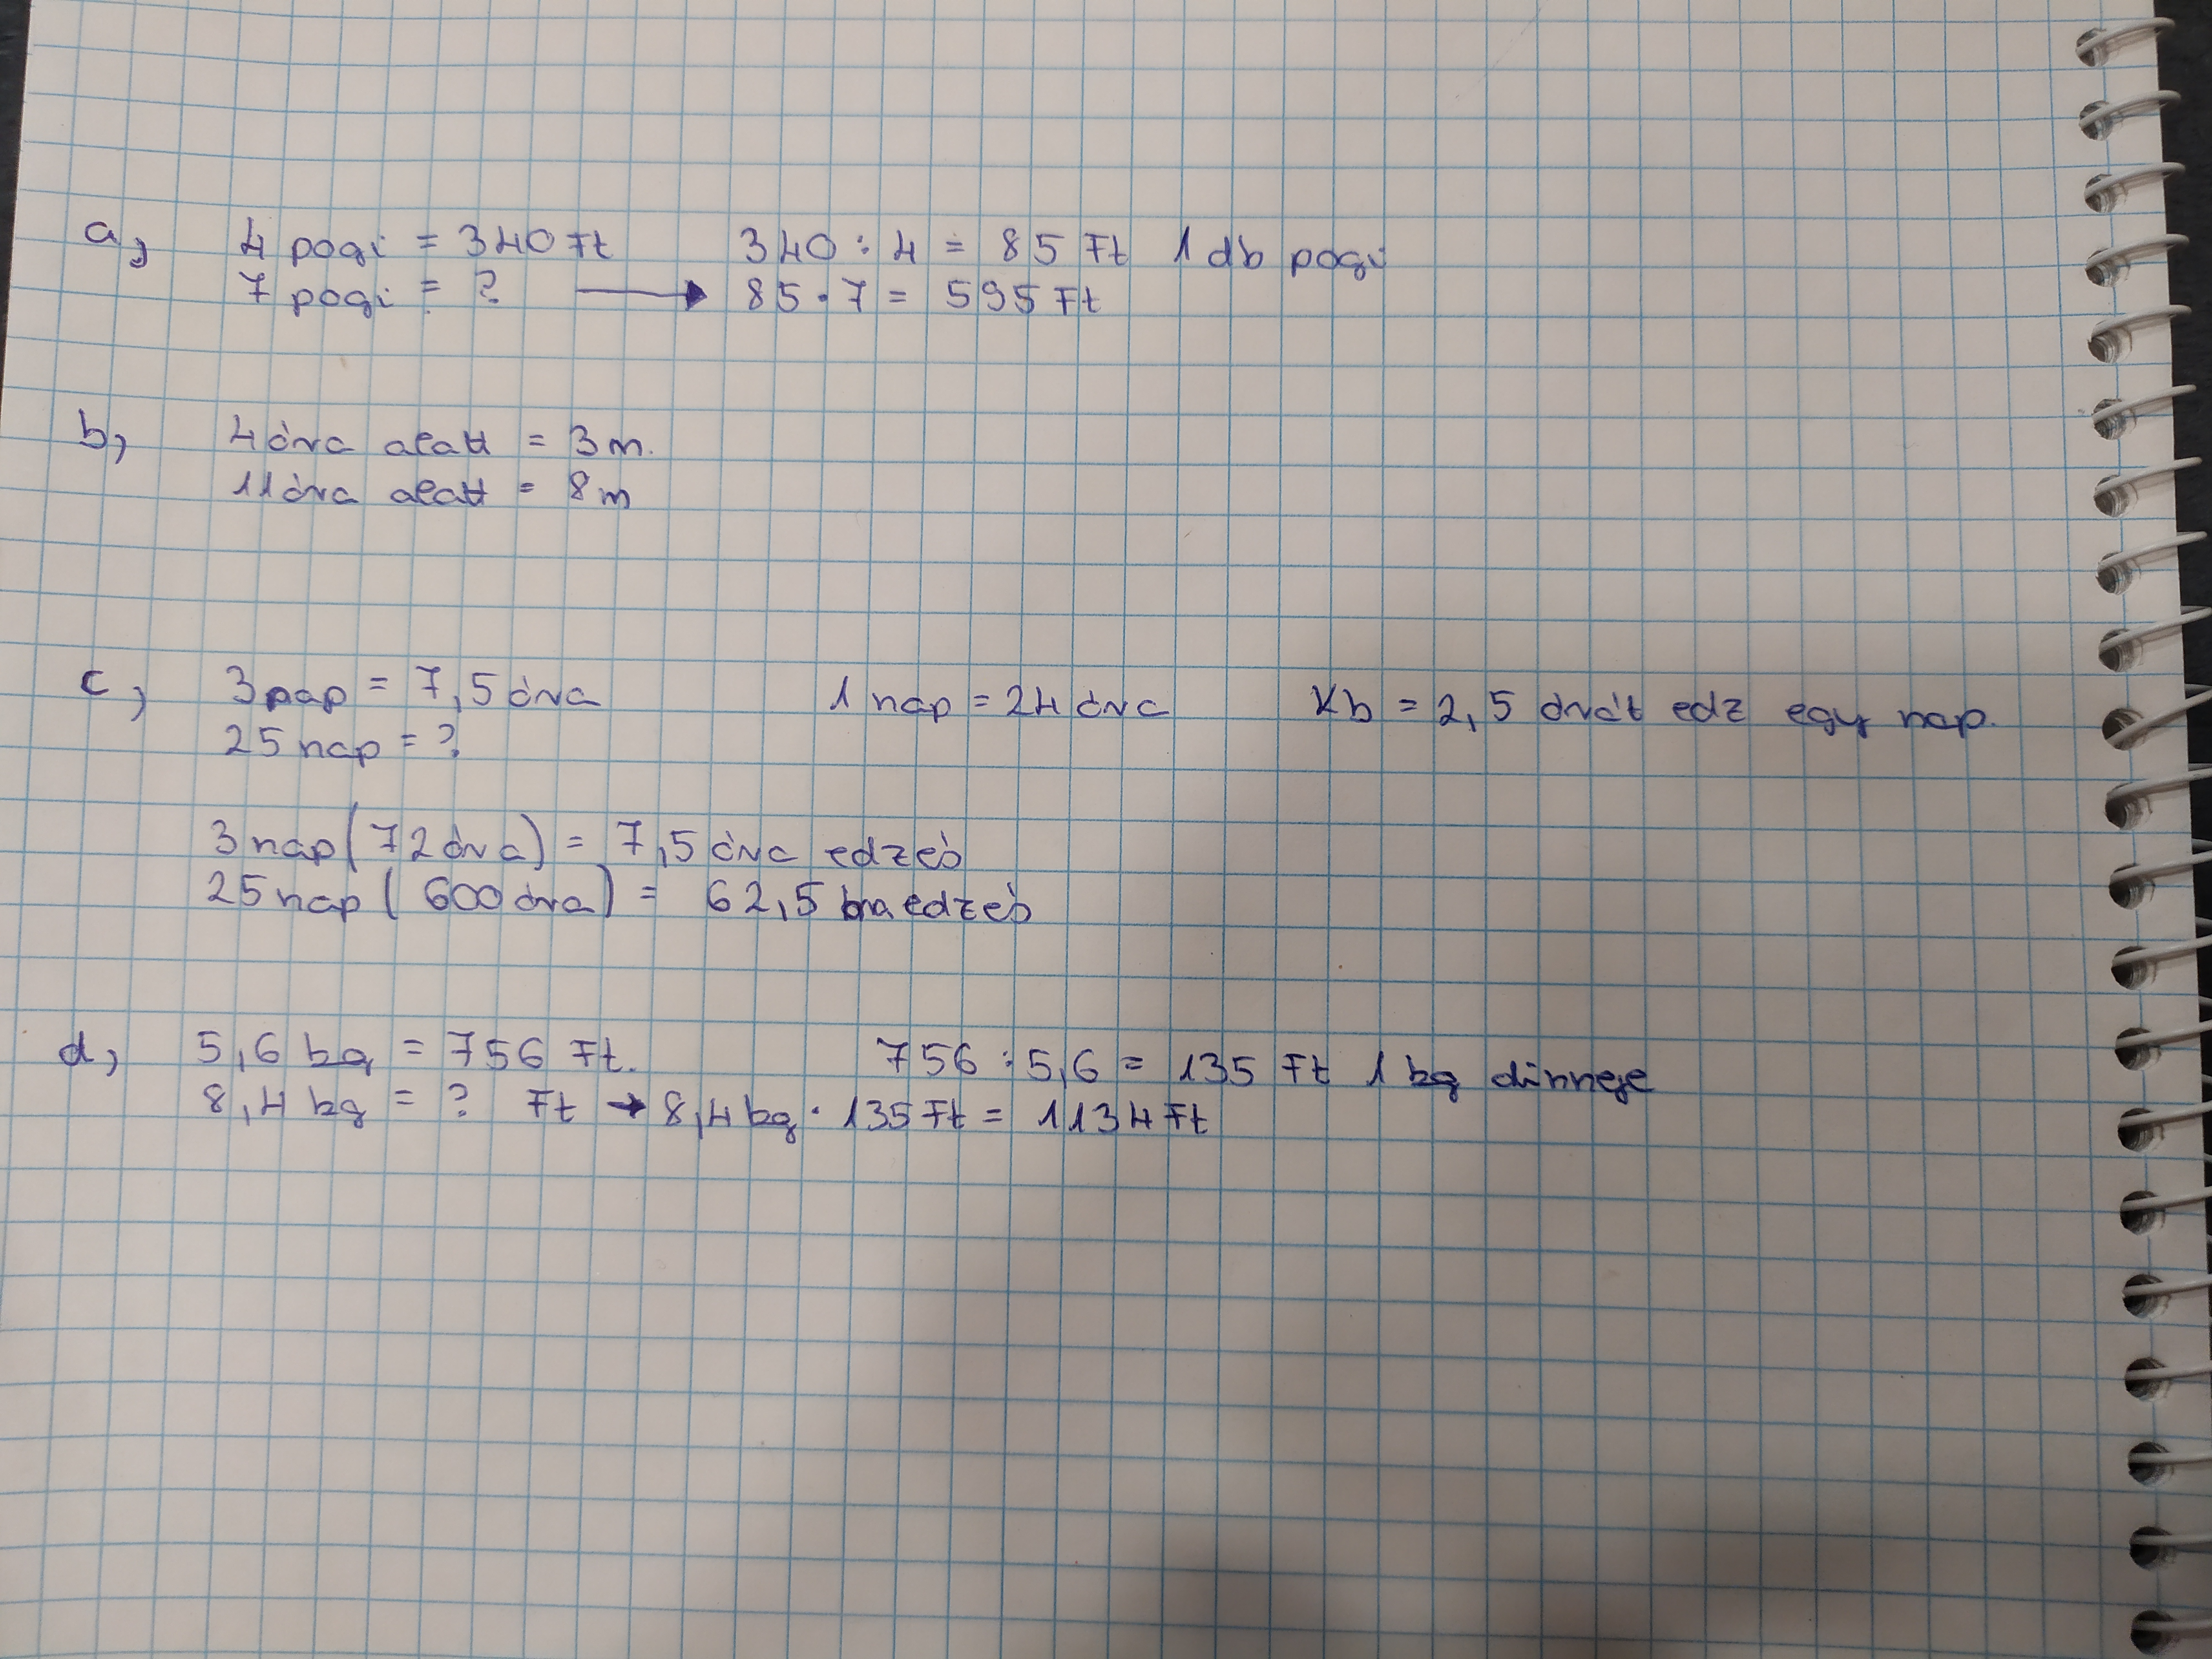 a, 4 pogi = 340 Ft 340 : 4 = 85 Ft 1 db pogi
7 pogi = ? → 85 · 7 = 595 Ft
b, 4 óra alatt = 3 m.
11 óra alatt = 8 m
c, 3 nap = 7,5 óra 1 nap = 24 óra Kb = 2,5 órát edz egy nap.
25 nap = ?
3 nap (72 óra) = 7,5 óra edzés
25 nap ( 600 óra) = 62,5 óra edzés
d, 5,6 kg = 756 Ft. 756 : 5,6 = 135 Ft 1 kg dinnye
8,4 kg = ? Ft → 8,4 kg · 135 Ft = 1134 Ft